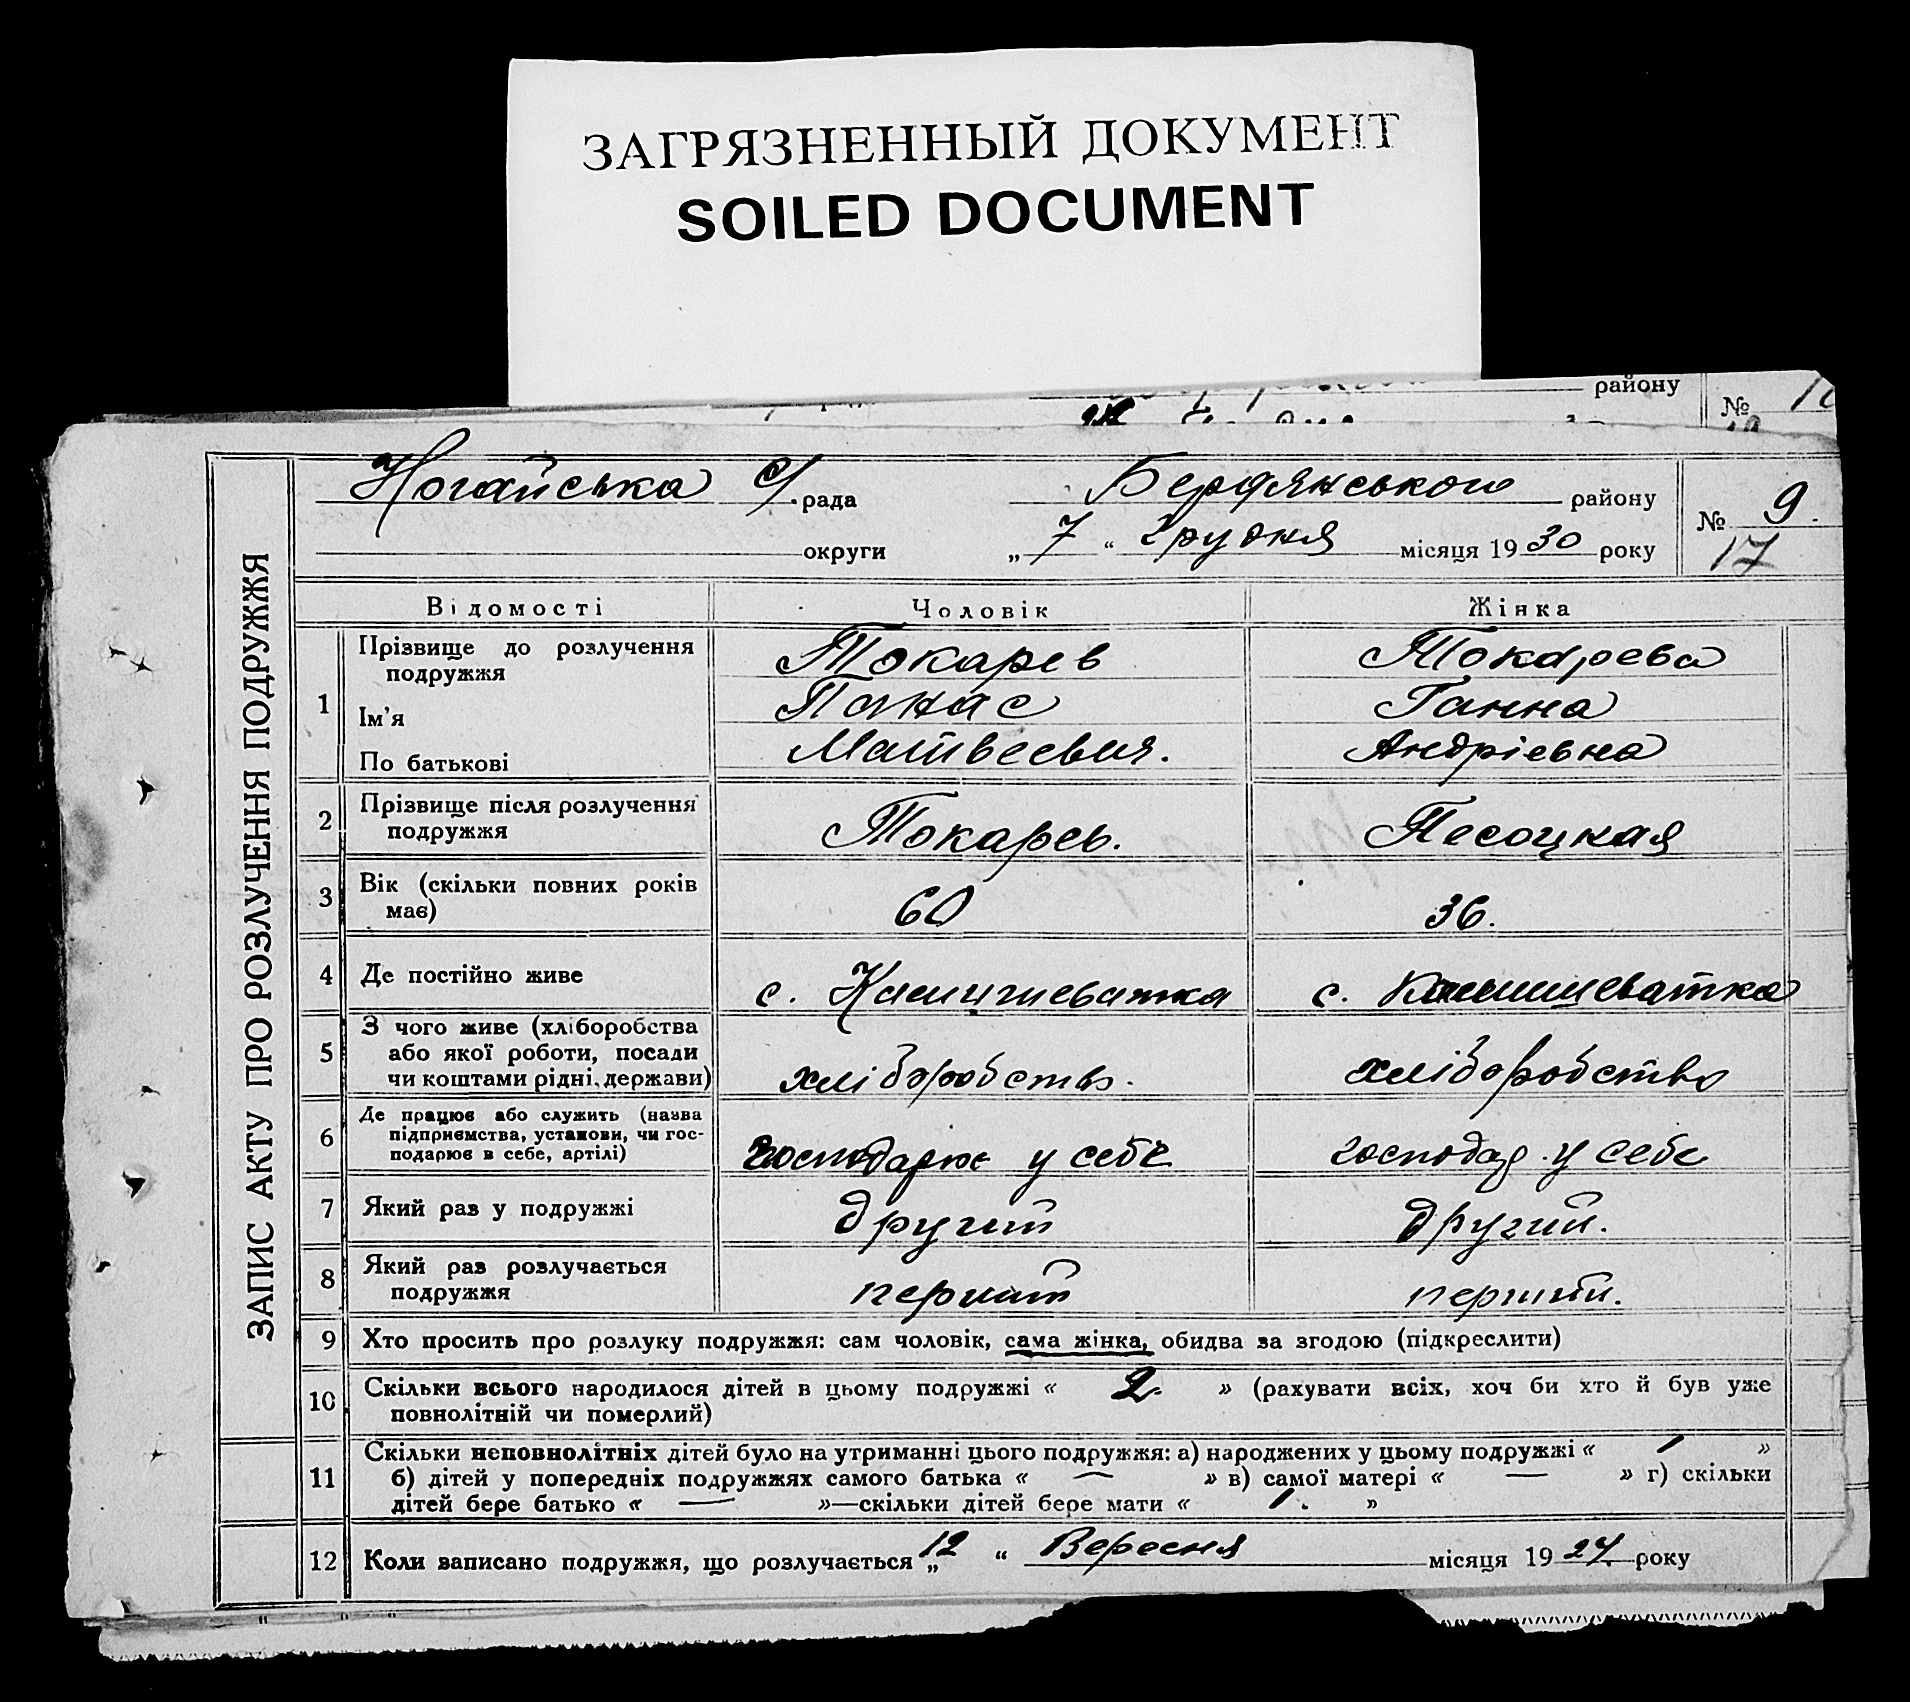 ЗАГРЯЗНЕННЫЙ ДОКУМЕНТ
SOILED DOCUMENT
району
№
ЗАПИС АКТУ ПРО РОЗЛУЧЕННЯ ПОДРУЖЖЯ
Ногайська с/рада Бердянського району № 9.
округи „ 7 “ Грудня місяця 1930 року 17
Відомості Чоловік Жінка
1 Прізвище до розлучення подружжя Токарев Токарева
Ім'я Панас Ганна
По батькові Матвеевич. Андріевна
2 Прізвище після розлучення подружжя Токарев. Песоцкая
3 Вік (скільки повних років має) 60 36.
4 Де постійно живе с. Камишеватка с. Камишеватка
5 З чого живе (хліборобства або якої роботи, посади чи коштами рідні, держави) хліборобство. хліборобство
6 Де працює або служить (назва підприємства, установи, чи господарює в себе, артілі) господарює у себе господар. у себе
7 Який раз у подружжі другий другий.
8 Який раз розлучається подружжя перший перший.
9 Хто просить про розлуку подружжя: сам чоловік, сама жінка, обидва за згодою (підкреслити)
10 Скільки всього народилося дітей в цьому подружжі « 2. » (рахувати всіх, хоч би хто й був уже
повнолітній чи померлий)
11 Скільки неповнолітніх дітей було на утриманні цього подружжя: а) народжених у цьому подружжі « 1 »
б) дітей у попередніх подружжях самого батька « — » в) самої матері « — » г) скільки
дітей бере батько « — »—скільки дітей бере мати « 1. »
12 Коли записано подружжя, що розлучається „ 12 “ Вересня місяця 1924. року